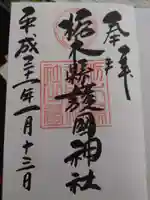 奉拝
栃木縣護國神社
平成三十一年一月十三日